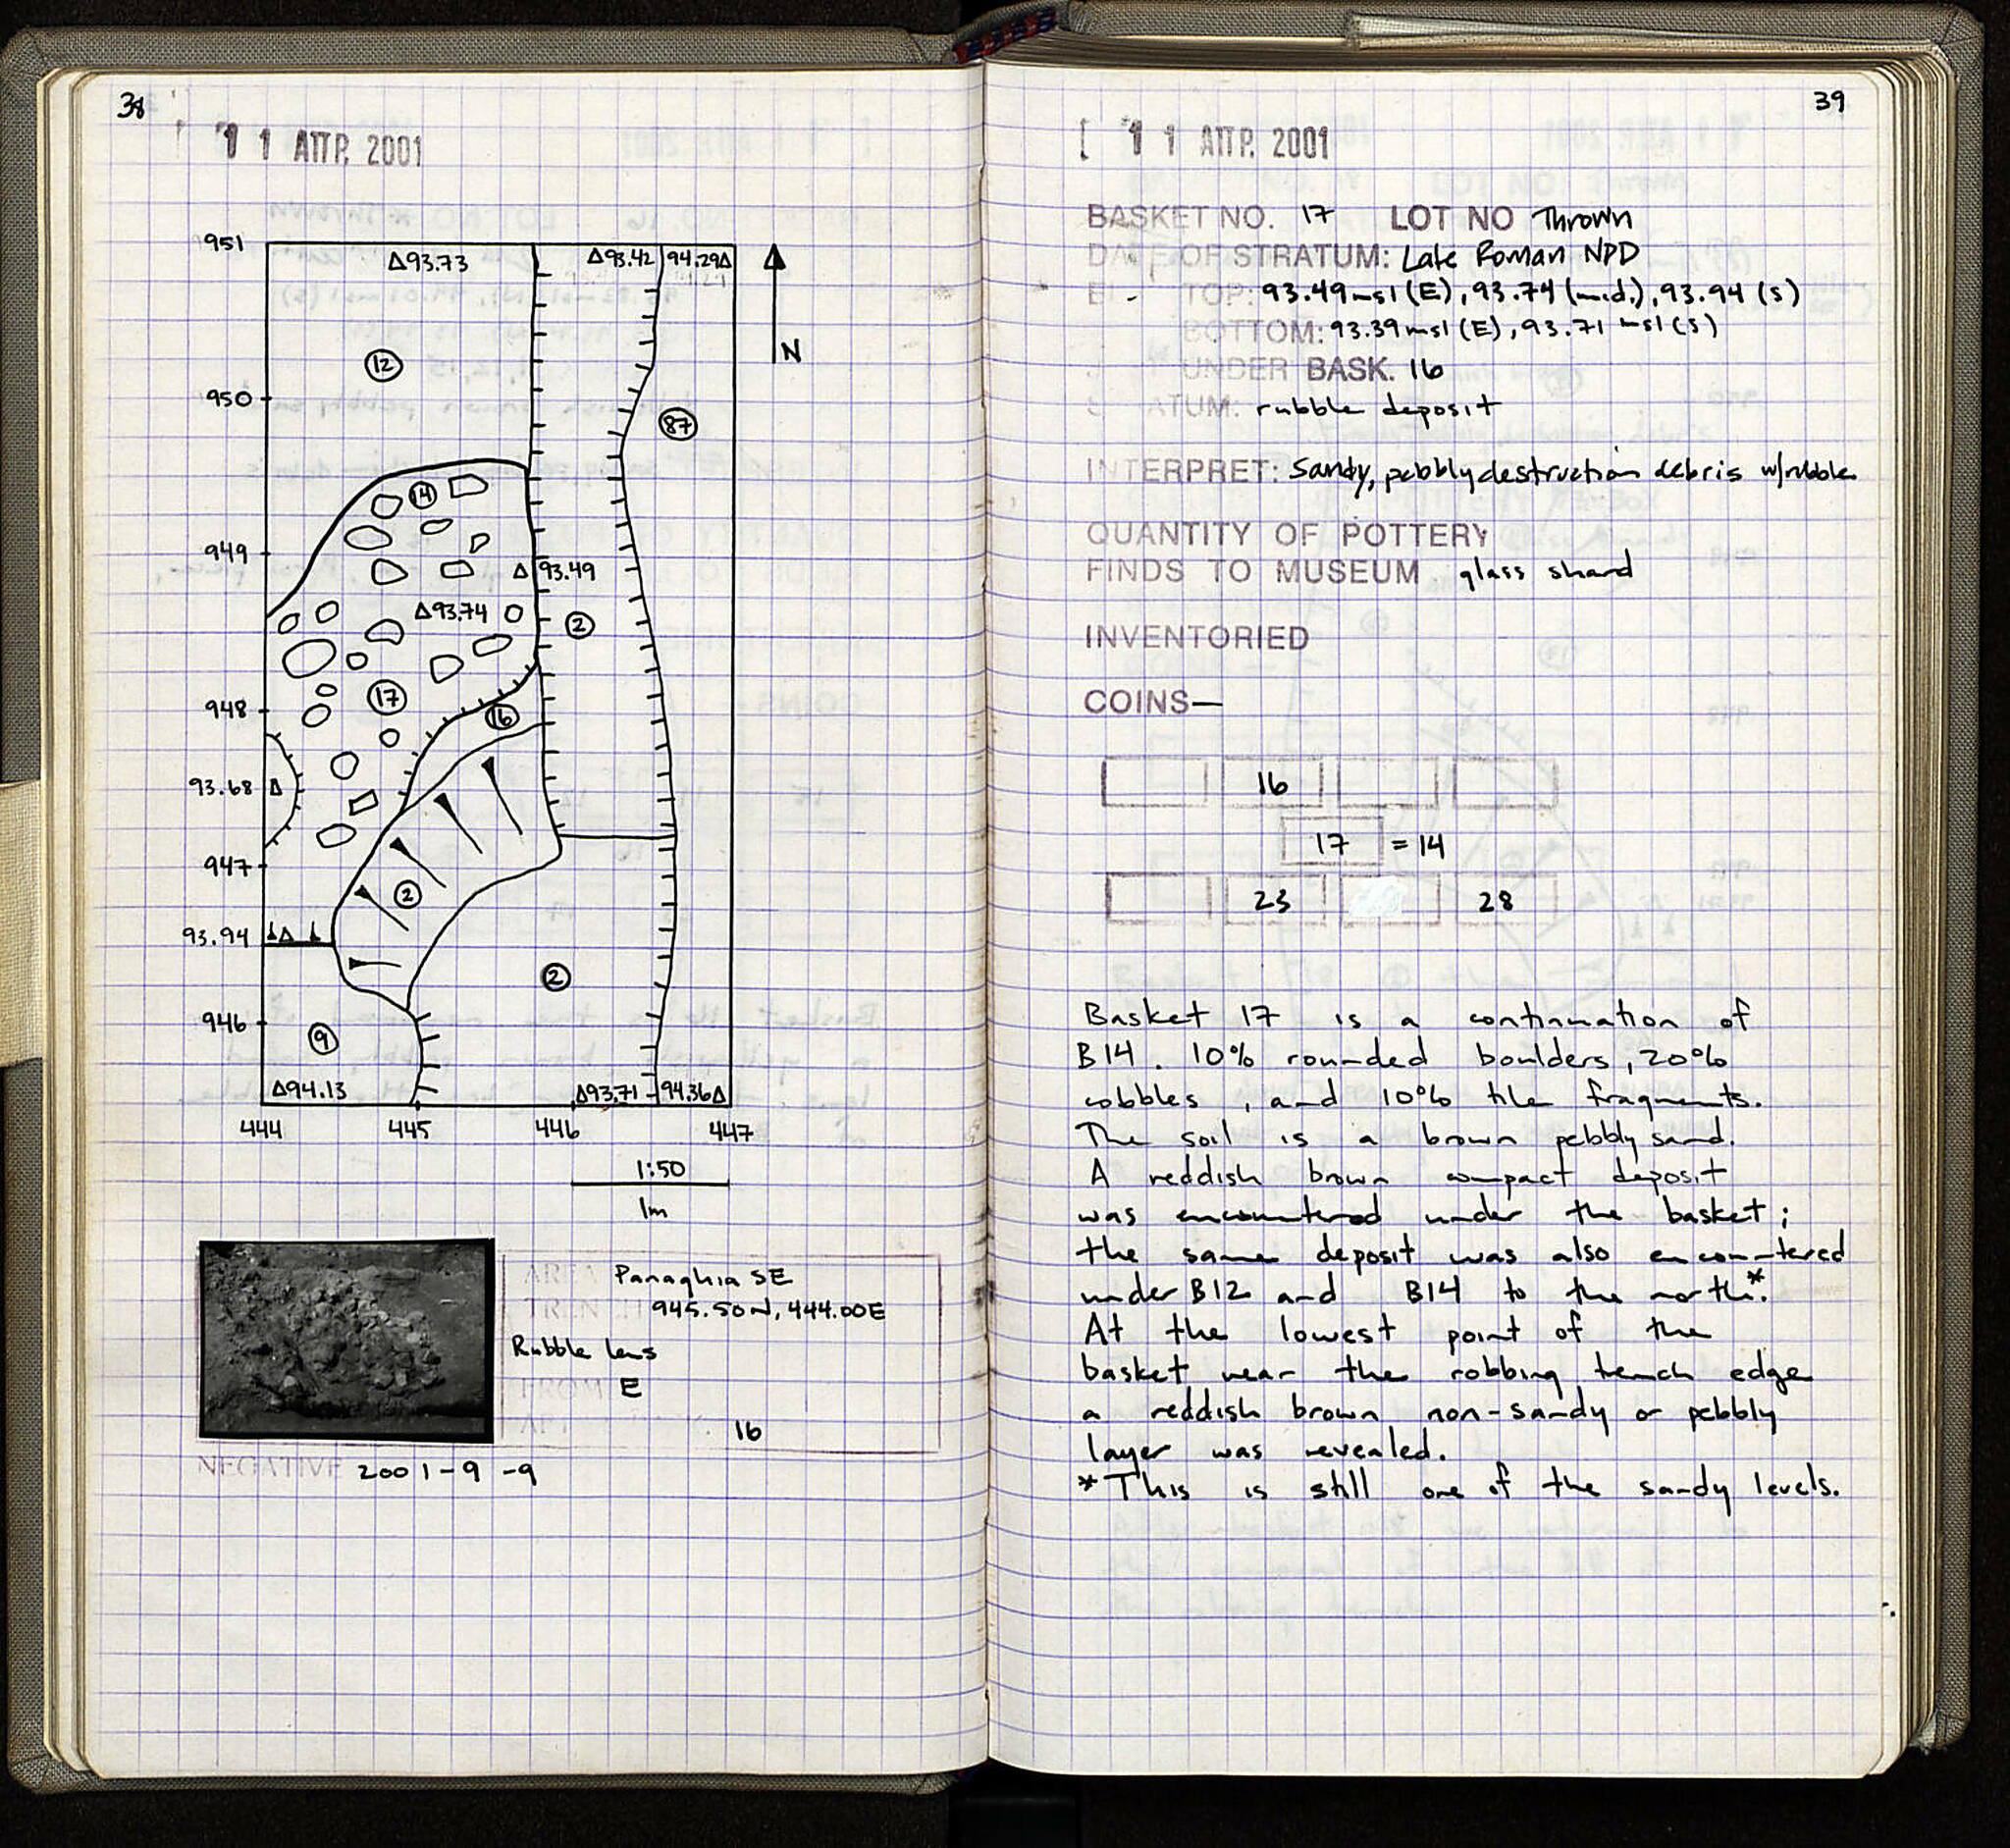 38
11 ΑΠΡ. 2001
951
Δ93.73
Δ93.42
94.29Δ
N
12
950
87
14
949
Δ 93.49
Δ93.74
2
17
948
16
93.68 Δ
947
2
93.94 Δ
2
946
9
Δ94.13
Δ93.71
94.36Δ
444 445 446 447
1:50
1m
AREA Panaghia SE
TRENCH 945.50N, 444.00E
Rubble lens
FROM E
16
NEGATIVE 2001-9-9
39
11 ΑΠΡ. 2001
BASKET NO. 17 LOT NO Thrown
DATE OF STRATUM: Late Roman NPD
TOP: 93.49msl (E), 93.74 (mid.), 93.94 (S)
BOTTOM: 93.39 msl (E), 93.71 msl (S)
UNDER BASK. 16
ATUM: rubble deposit
INTERPRET: Sandy, pebbly destruction debris w/rubble
QUANTITY OF POTTERY
FINDS TO MUSEUM glass shard
INVENTORIED
COINS—
16
17 = 14
23 28
Basket 17 is a continuation of
B14. 10% rounded boulders, 20%
cobbles, and 10% tile fragments.
The soil is a brown pebbly sand.
A reddish brown compact deposit
was encountered under the basket;
the same deposit was also encountered
under B12 and B14 to the north*.
At the lowest point of the
basket near the robbing trench edge
a reddish brown non-sandy or pebbly
layer was revealed.
*This is still one of the sandy levels.